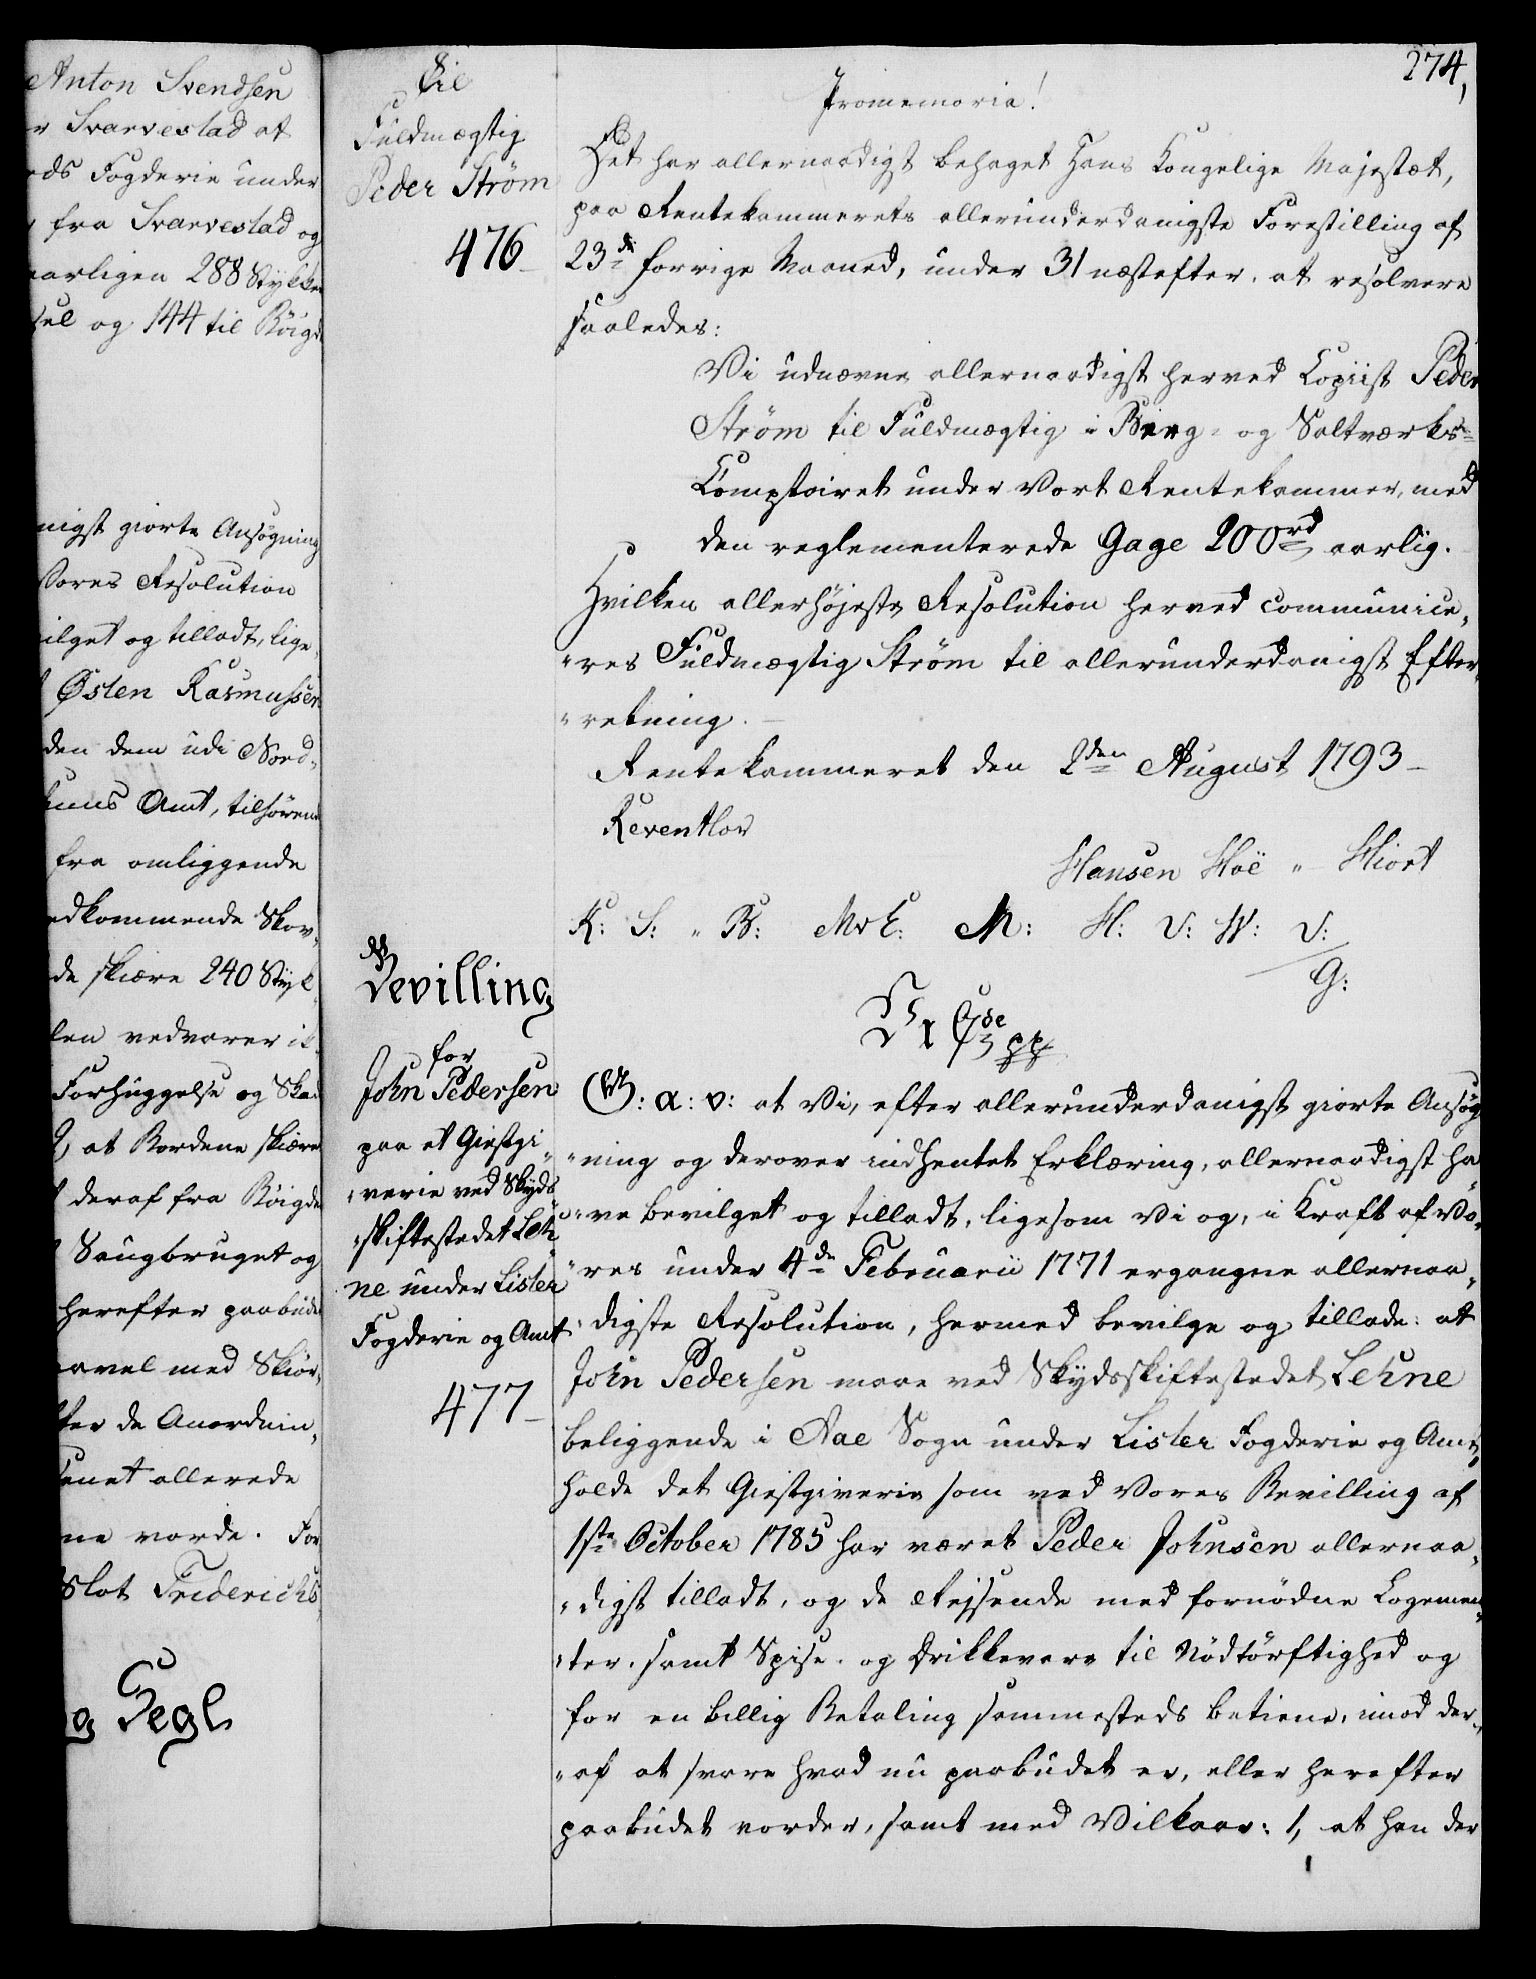 Anton Svendsen
r Svarvestad at
rds Fogderie under
fra Svarvestad og
aarligen 288 Stykker
sel og 144 til Röigd
nigst giorte Ansøgning
Vores Resolution
vilget og tilladt, lige„
Østen Rasmussen
den dem udi Nord„
huus Amt, tilhørende
fra omliggende
edkommende Skov„
de skiære 240 Styk„
len vedvarer ik„
Forhuggelse og Skad
2, at Bordene skiæres
deraf fra Röigde
Saugbruget og
herefter paabudet
aavel med Skiør„
fter de Anordnin„
senet allerede
ne vorde. For
Slot Friderichs
og Segl
274,
Til
Fuldmægtig
Peder Ström
476
Promemoria!
Det har allernaadigst behaget Hans Kongelige Majestæt,
paa Rentekammerets allerunderdanigste Forestilling af
23de forrige Maaned, under 31 næstefter, at resolvere
saaledes:
Vi udnævne allernaadigst herved Copiist Peder
Ström til Fuldmægtig i Berg- og Saltværks-
Comptoiret under Vort Rentekammer, med
den reglementerede Gage 200 rd aarlig.
Hvilken allerhøjeste Resolution herved communice„
„res Fuldmægtig Ström til allerunderdanigst Efter„
„retning.
Rentekammeret den 2den August 1793
Reventlov
Hansen Hoë „ Hiort
K: S: „ B: MvE: M: H: V: W: V:
G:
Bevilling
for
John Pedersen
paa et Giestgi„
„verie ved Skyds„
„skiftestedet Leh„
ne under Lister
Fogderie og Amt
477
C 7de pp
G: a: v: at Vi, efter allerunderdanigst giorte Ansøg„
„ning og derover indhentet Erklæring, allernaadigst ha„
„ve bevilget og tilladt, ligesom Vi og, i Kraft af Vo„
„res under 4de Februarii 1771 ergangne allernaa„
„digste Resolution, hermed bevilge og tillade: at
John Pedersen maae ved Skydsskiftestedet Lehne
beliggende i Aae Sogn under Lister Fogderie og Amt,
holde det Giestgiverie som ved Vores Bevilling af
1ste October 1785 har været Peder Johnsen allernaa„
„digst tilladt, og de Rejsende med fornødne Logemen„
„ter, samt Spise- og Drikkevare til Nödtörftighed og
for en billig Betaling sammesteds betiene, imod der„
„af at svare hvad nu paabudet er, eller herefter
paabudet vorder, samt med Vilkaar: 1, at han der